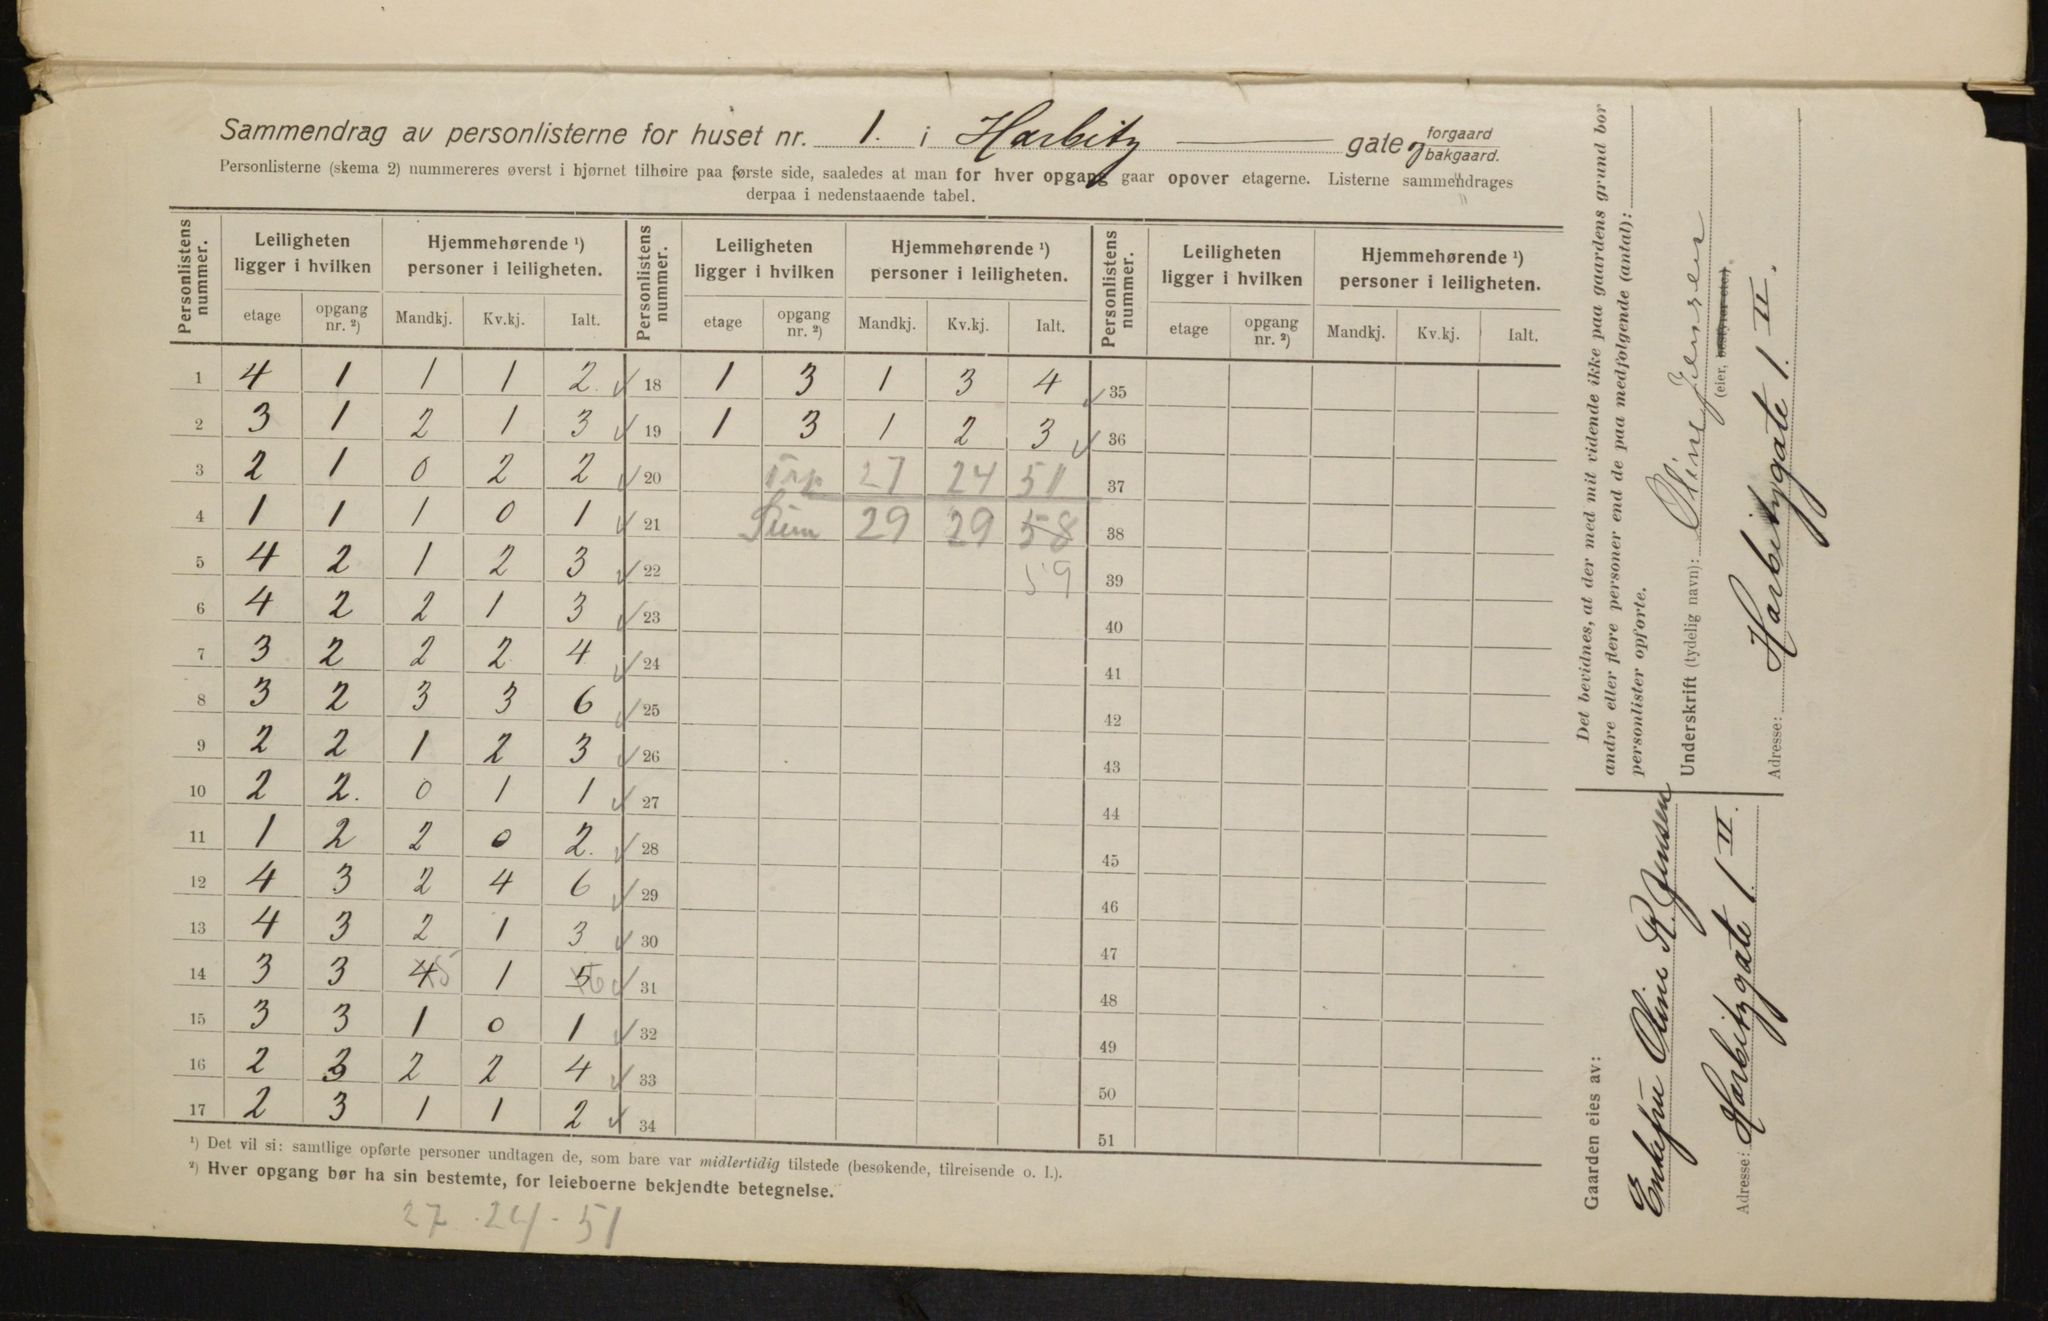 Sammendrag av personlisterne for huset nr. 1. i Harbitz gate forgaard bakgaard.
Personlisterne (skema 2) nummereres øverst i hjørnet tilhøire paa første side, saaledes at man for hver opgang gaar opover etagerne. Listerne sammendrages
derpaa i nedenstaaende tabel.
Personlistens nummer. Leiligheten ligger i hvilken Hjemmehørende ¹) personer i leiligheten. Personlistens nummer. Leiligheten ligger i hvilken Hjemmehørende ¹) personer i leiligheten. Personlistens nummer. Leiligheten ligger i hvilken Hjemmehørende ¹) personer i leiligheten.
etage opgang nr. ²) Mandkj. Kv.kj. Ialt. etage opgang nr. ²) Mandkj. Kv.kj. Ialt. etage opgang nr. ²) Mandkj. Kv.kj. Ialt.
1 4 1 1 1 2. 18 1 3 1 3 4 35
2 3 1 2 1 3 19 1 3 1 2 3 36
3 2 1 0 2 2 20 27 24 51 37
4 1 1 1 0 1 21 Sum 29 29 58 38
5 4 2 1 2 3 22 59 39
6 4 2 2 1 3 23 40
7 3 2 2 2 4 24 41
8 3 2 3 3 6 25 42
9 2 2 1 2 3 26 43
10 2 2. 0 1 1 27 44
11 1 2 2 0 2. 28 45
12 4 3 2 4 6 29 46
13 4 3 2 1 3 30 47
14 3 3 4 5 1 5 6 31 48
15 3 3 1 0 1 32 49
16 2 3 2 2 4 33 50
17 2 3 1 1 2 34 51
¹) Det vil si: samtlige opførte personer undtagen de, som bare var midlertidig tilstede (besøkende, tilreisende o. l.).
²) Hver opgang bør ha sin bestemte, for leieboerne bekjendte betegnelse.
27 . 24 . 51
Det bevidnes, at der med mit vidende ikke paa gaardens grund bor
andre eller flere personer end de paa medfølgende (antal):
personlister opførte.
Underskrift (tydelig navn): Oline Jensen
(eier, bestyrer etc.)
Adresse: Harbitzgate 1. II.
Gaarden eies av:
Enkefru Oline K. Jensen
Adresse: Harbitzgate 1. II.